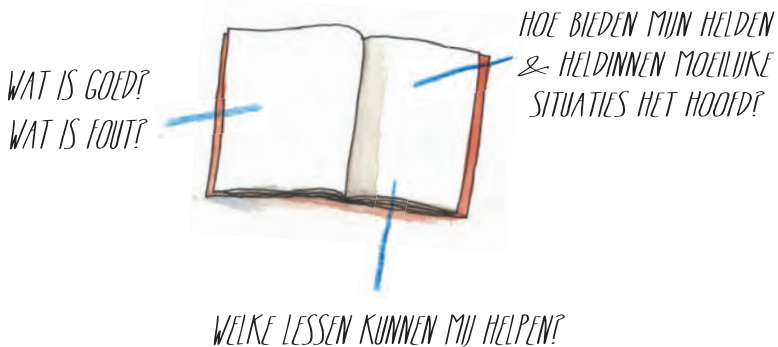 WAT IS GOED?
WAT IS FOUT?
HOE BIEDEN MIJN HELDEN
& HELDINNEN MOEILIJKE
SITUATIES HET HOOFD?
WELKE LESSEN KUNNEN MIJ HELPEN?